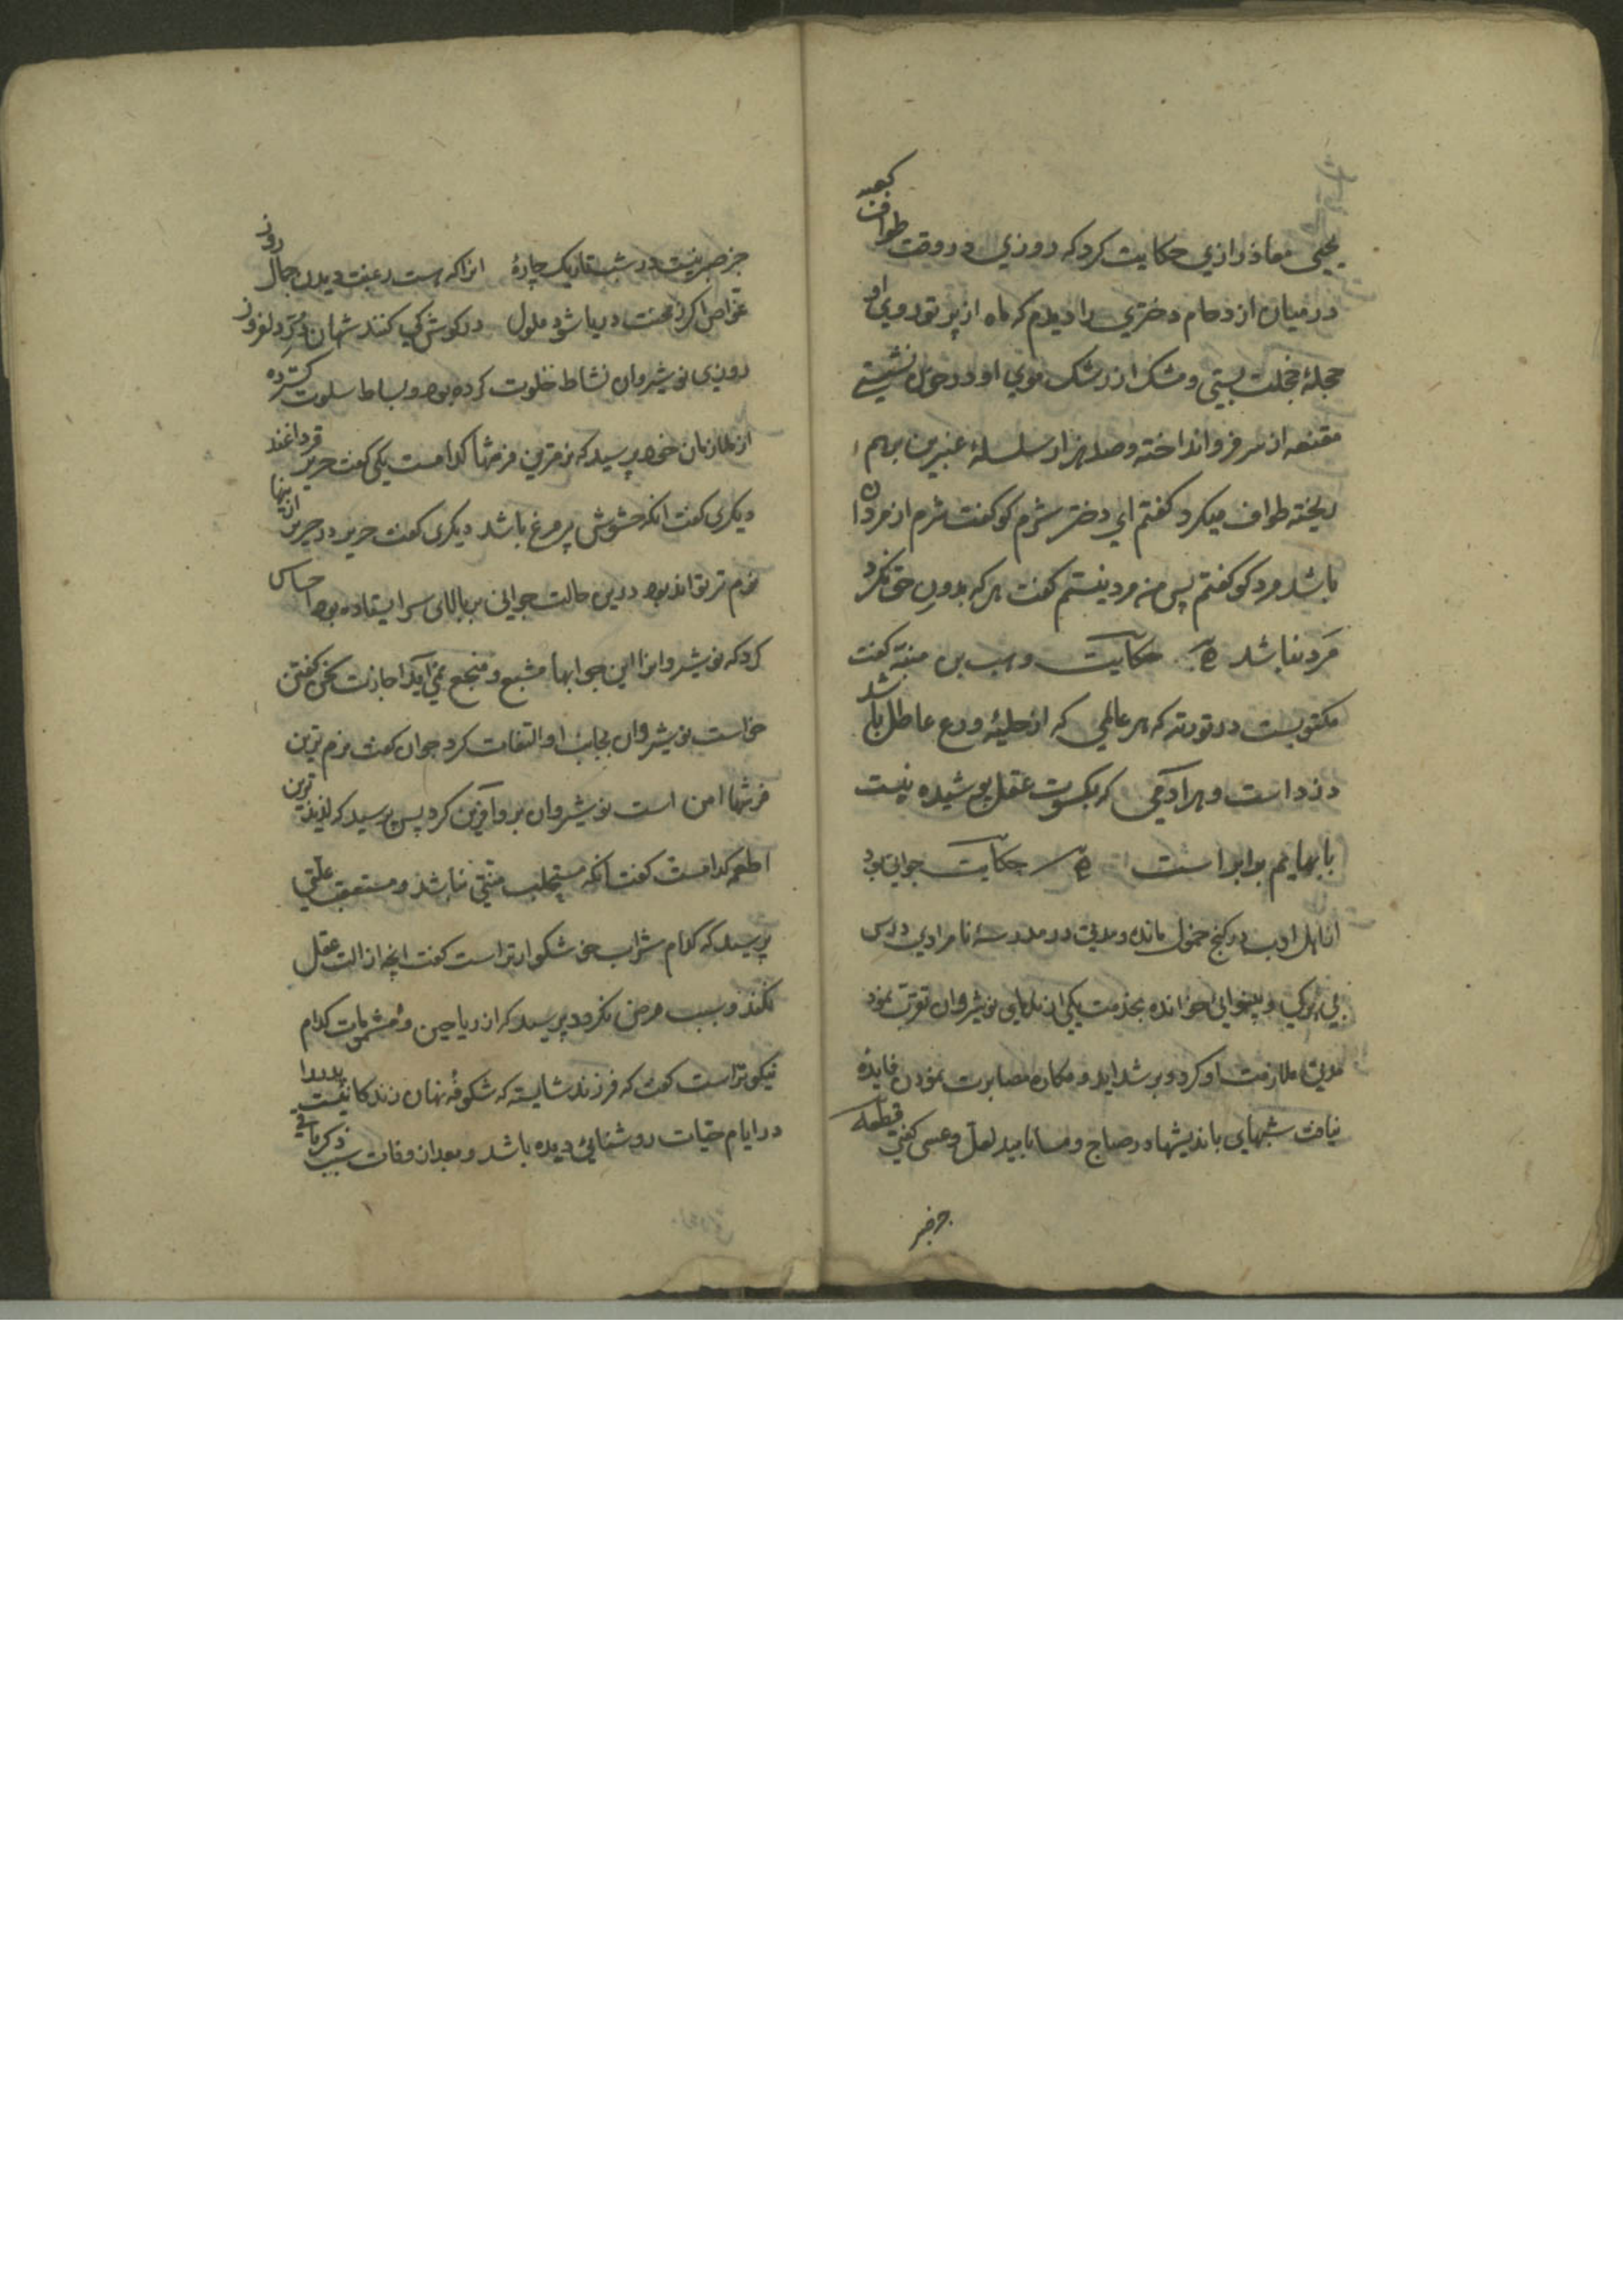 یحیی معاذ رازی حکایت کرد که روزی در وقت طواف کعبه
در میان ازدحام دختری را دیدم که ماه از پرتو روی او
حجلهٔ خجلت بستی و مشک از رشک موی او در نشستی
مقنعه از سر فرو انداخته و صد هزار سلسلهٔ عنبرین برهم
ریخته طواف میکرد گفتم ای دختر شرم کو گفت شرم از مردان
باشد مرد کو گفتم پس من مرد نیستم گفت هرکه بدون حق نکرد
مرد نباشد حکایت وهب بن منبه گفت
مکتوبست در توریة که هر عالمی که از حلیهٔ ورع عاطل باشد
دزد است و هر آدمی که بکسوت عقل پوشیده نیست
با بهایم برابر است حکایت جوانی بود
از اهل ادب در کنج خمول مانده و مدتی در مدرسهٔ نامرادی درس
بی برگی و بینوایی خوانده بخدمت یکی از ندمای نوشیروان تقرب نمود
مدتی ملازمت او کرد و بر شداید و مکاره مصابرت نمودن فایدهٔ
نیافت شبهای باندیشها در صباح و مسا بامید لعل و عسی گفتی قطعه
جز صبر
جز صبر نیست در شب تاریک چارهٔ انرا که هست رغبت دیدن جمال روز
غواص اکر ز محنت دریا شود ملول در کوش کی کنند شهان در دلفروز
روزی نوشیروان نشاط خلوت کرده بود و بساط سلوت کسترده
از ملازمان خود پرسید که نرم ترین فرشها کدامست یکی گفت حریر قزداغند
دیکری گفت انکه حشوش پر مرغ باشد دیکری گفت حریر در حریر ازینها
نرم تر تواند بود درین حالت جوانی بر بالای سر ایستاده بود احساس
کرد که نوشیروانرا این جوابها مشبع و منجع نمی آید اجازت سخن گفتن
خواست نوشیروان بجانب او التفات کرد جوان گفت نرم ترین
فرشها امن است نوشیروان برو آفرین کرد پس پرسید که لذیذ ترین
اطعمه کدامست گفت آنکه مستجلب منتی نباشد و مستعقب علتی
پرسید که کدام شراب خوشکوارتر است گفت انچه ازالت عقل
نکند و سبب مرض نکردد پرسید که از ریاحین و مشمومات کدام
نیکوتر است گفت که فرزند شایسته که شکوفهٔ نهان زندکانیست پدر را
در ایام حیات روشنائی دیده باشد و بعد از وفات سبب ذکر باقی